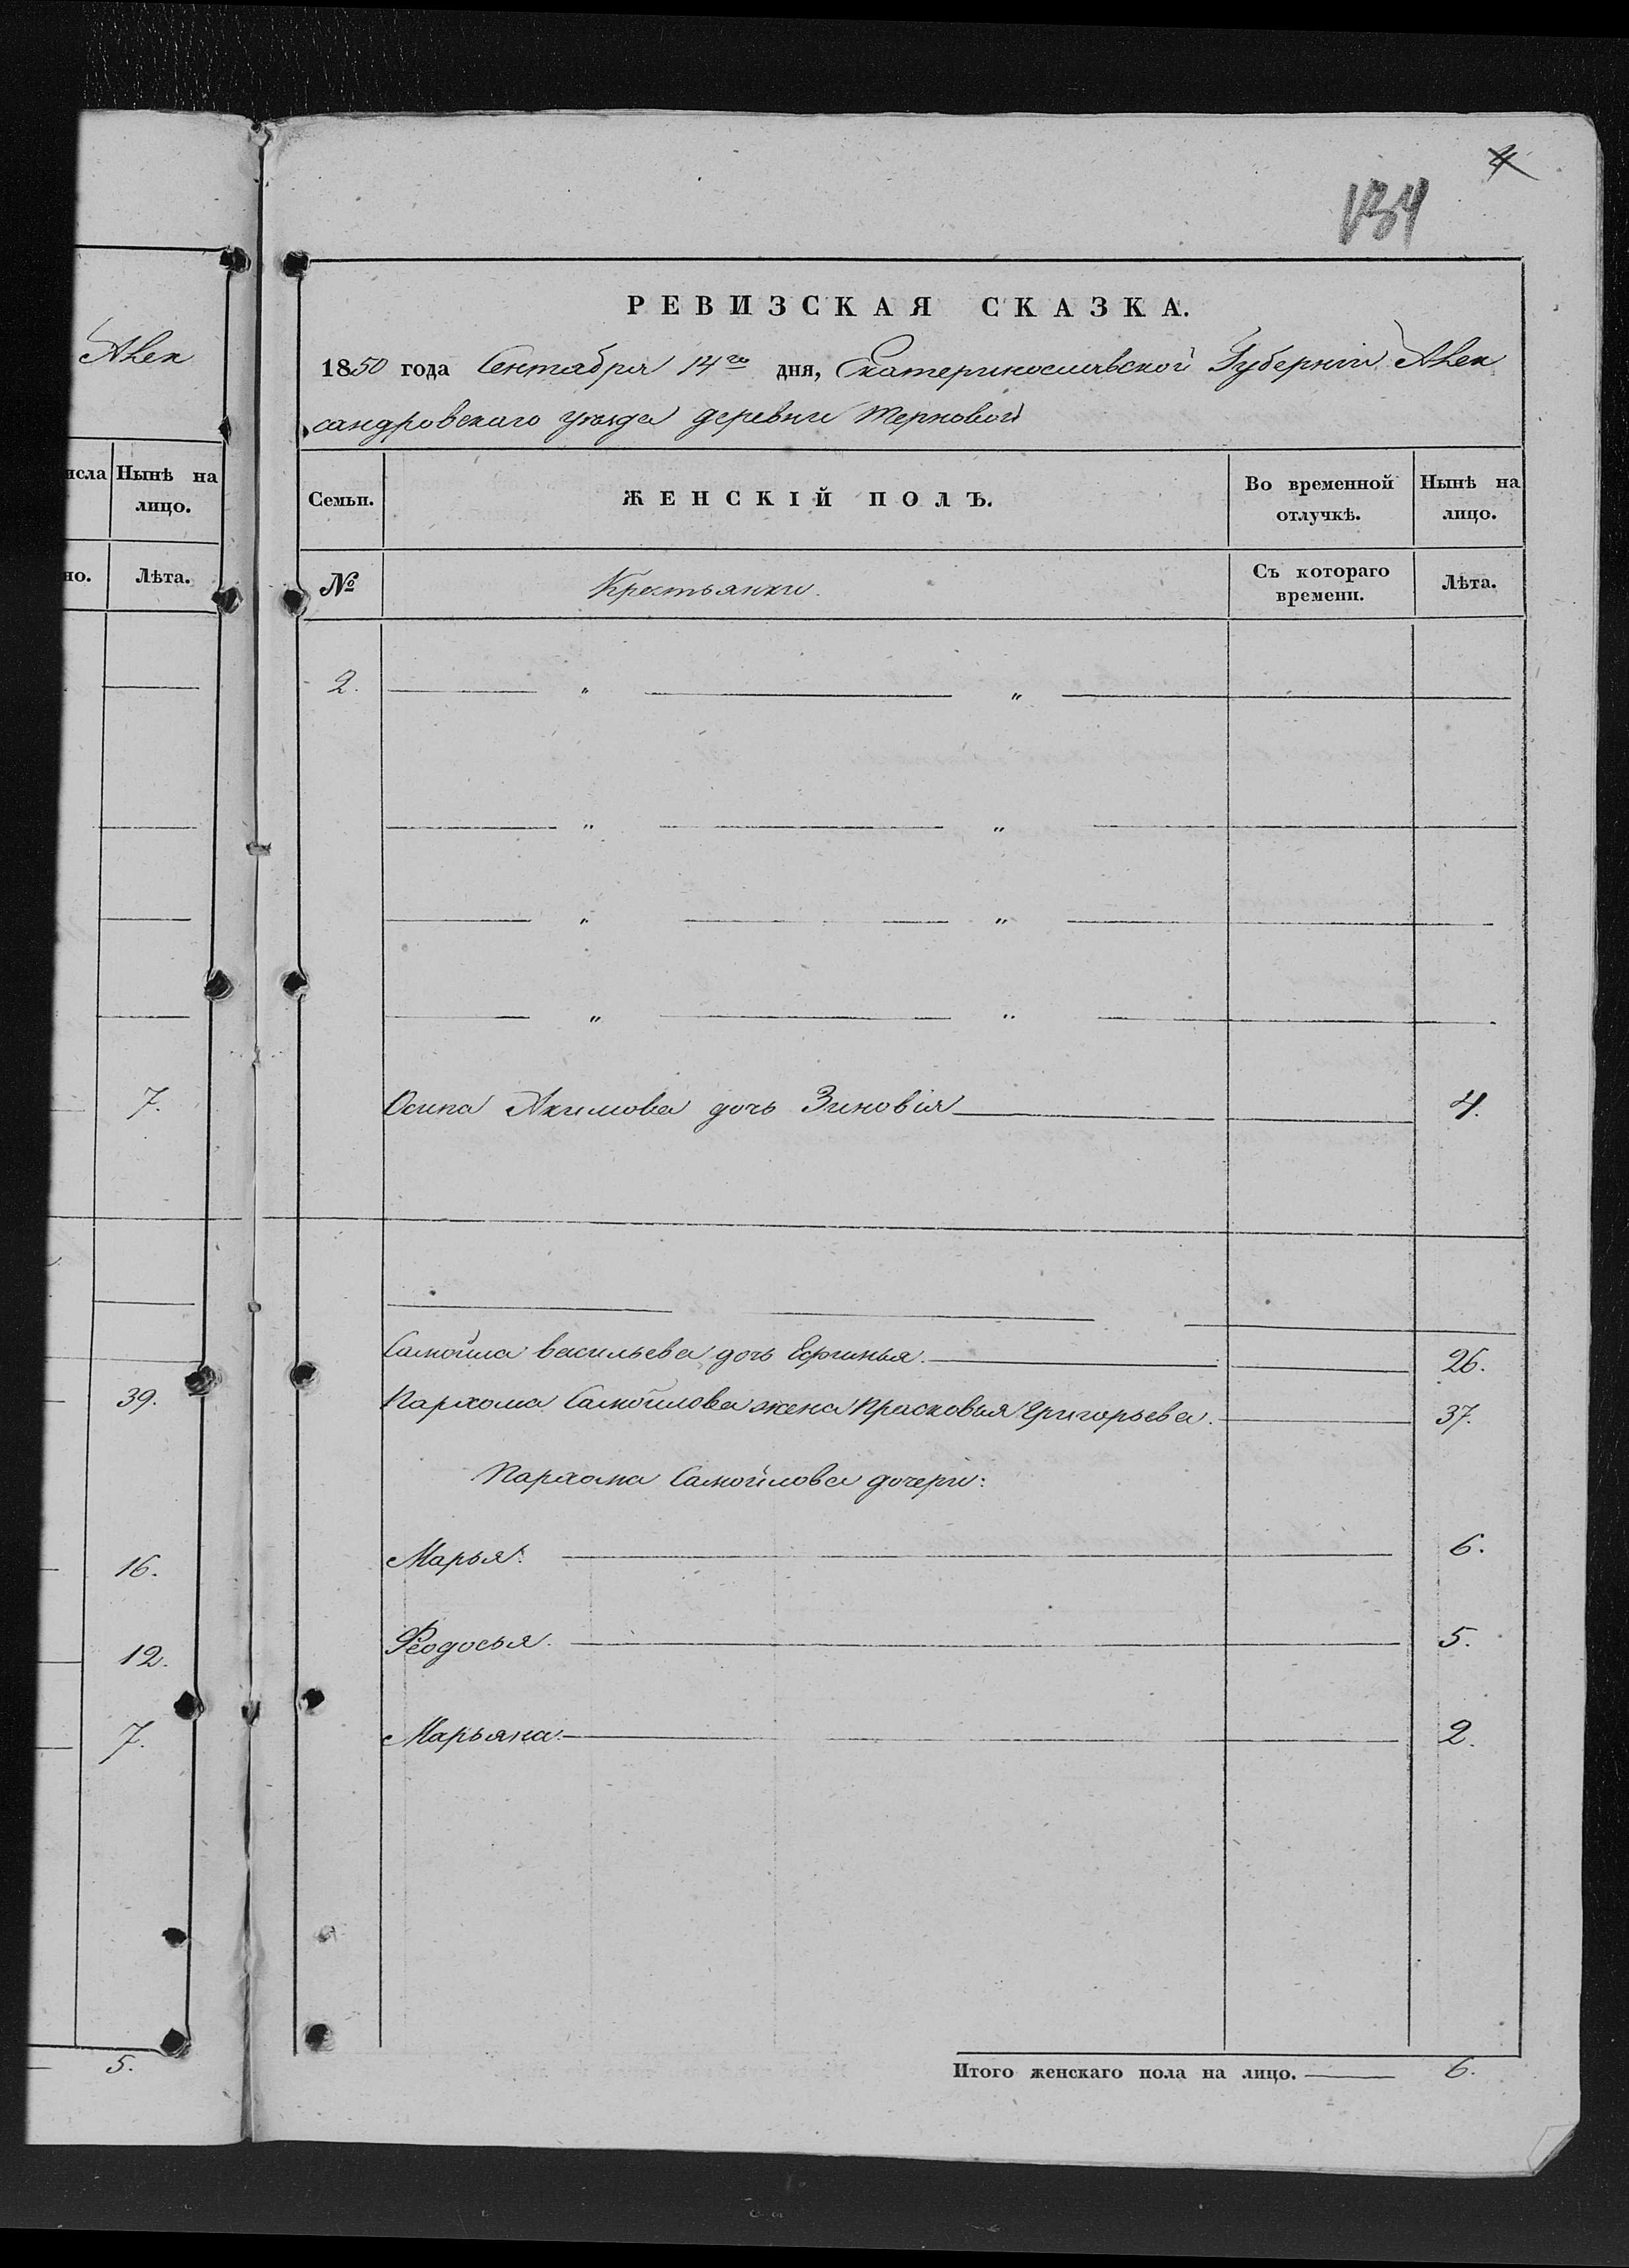 Алек
исла Нынѣ на
лицо.
но. Лѣта.
7.
39.
16.
12.
7.
5.
4
134
РЕВИЗСКАЯ СКАЗКА.
1850 года Сентября 14го дня, Екатеринославской Губерніи Алек
сандровскаго уѣзда деревни Терновой
Семьи. ЖЕНСКІЙ ПОЛЪ. Во временной отлучкѣ. Нынѣ на лицо.
№ Крестьянки. Съ котораго времени. Лѣта.
2. " "
" "
" "
" "
Осипа Акимова дочь Зиновія 4.
Самойла васильева дочь Ефгинья. 26.
Пархома Самойлова жена Прасковья Григорьева. 37.
Пархома Самойлова дочери:
Марья. 6.
Феодосья. 5.
Марьяна. 2.
Итого женскаго пола на лицо. 6.